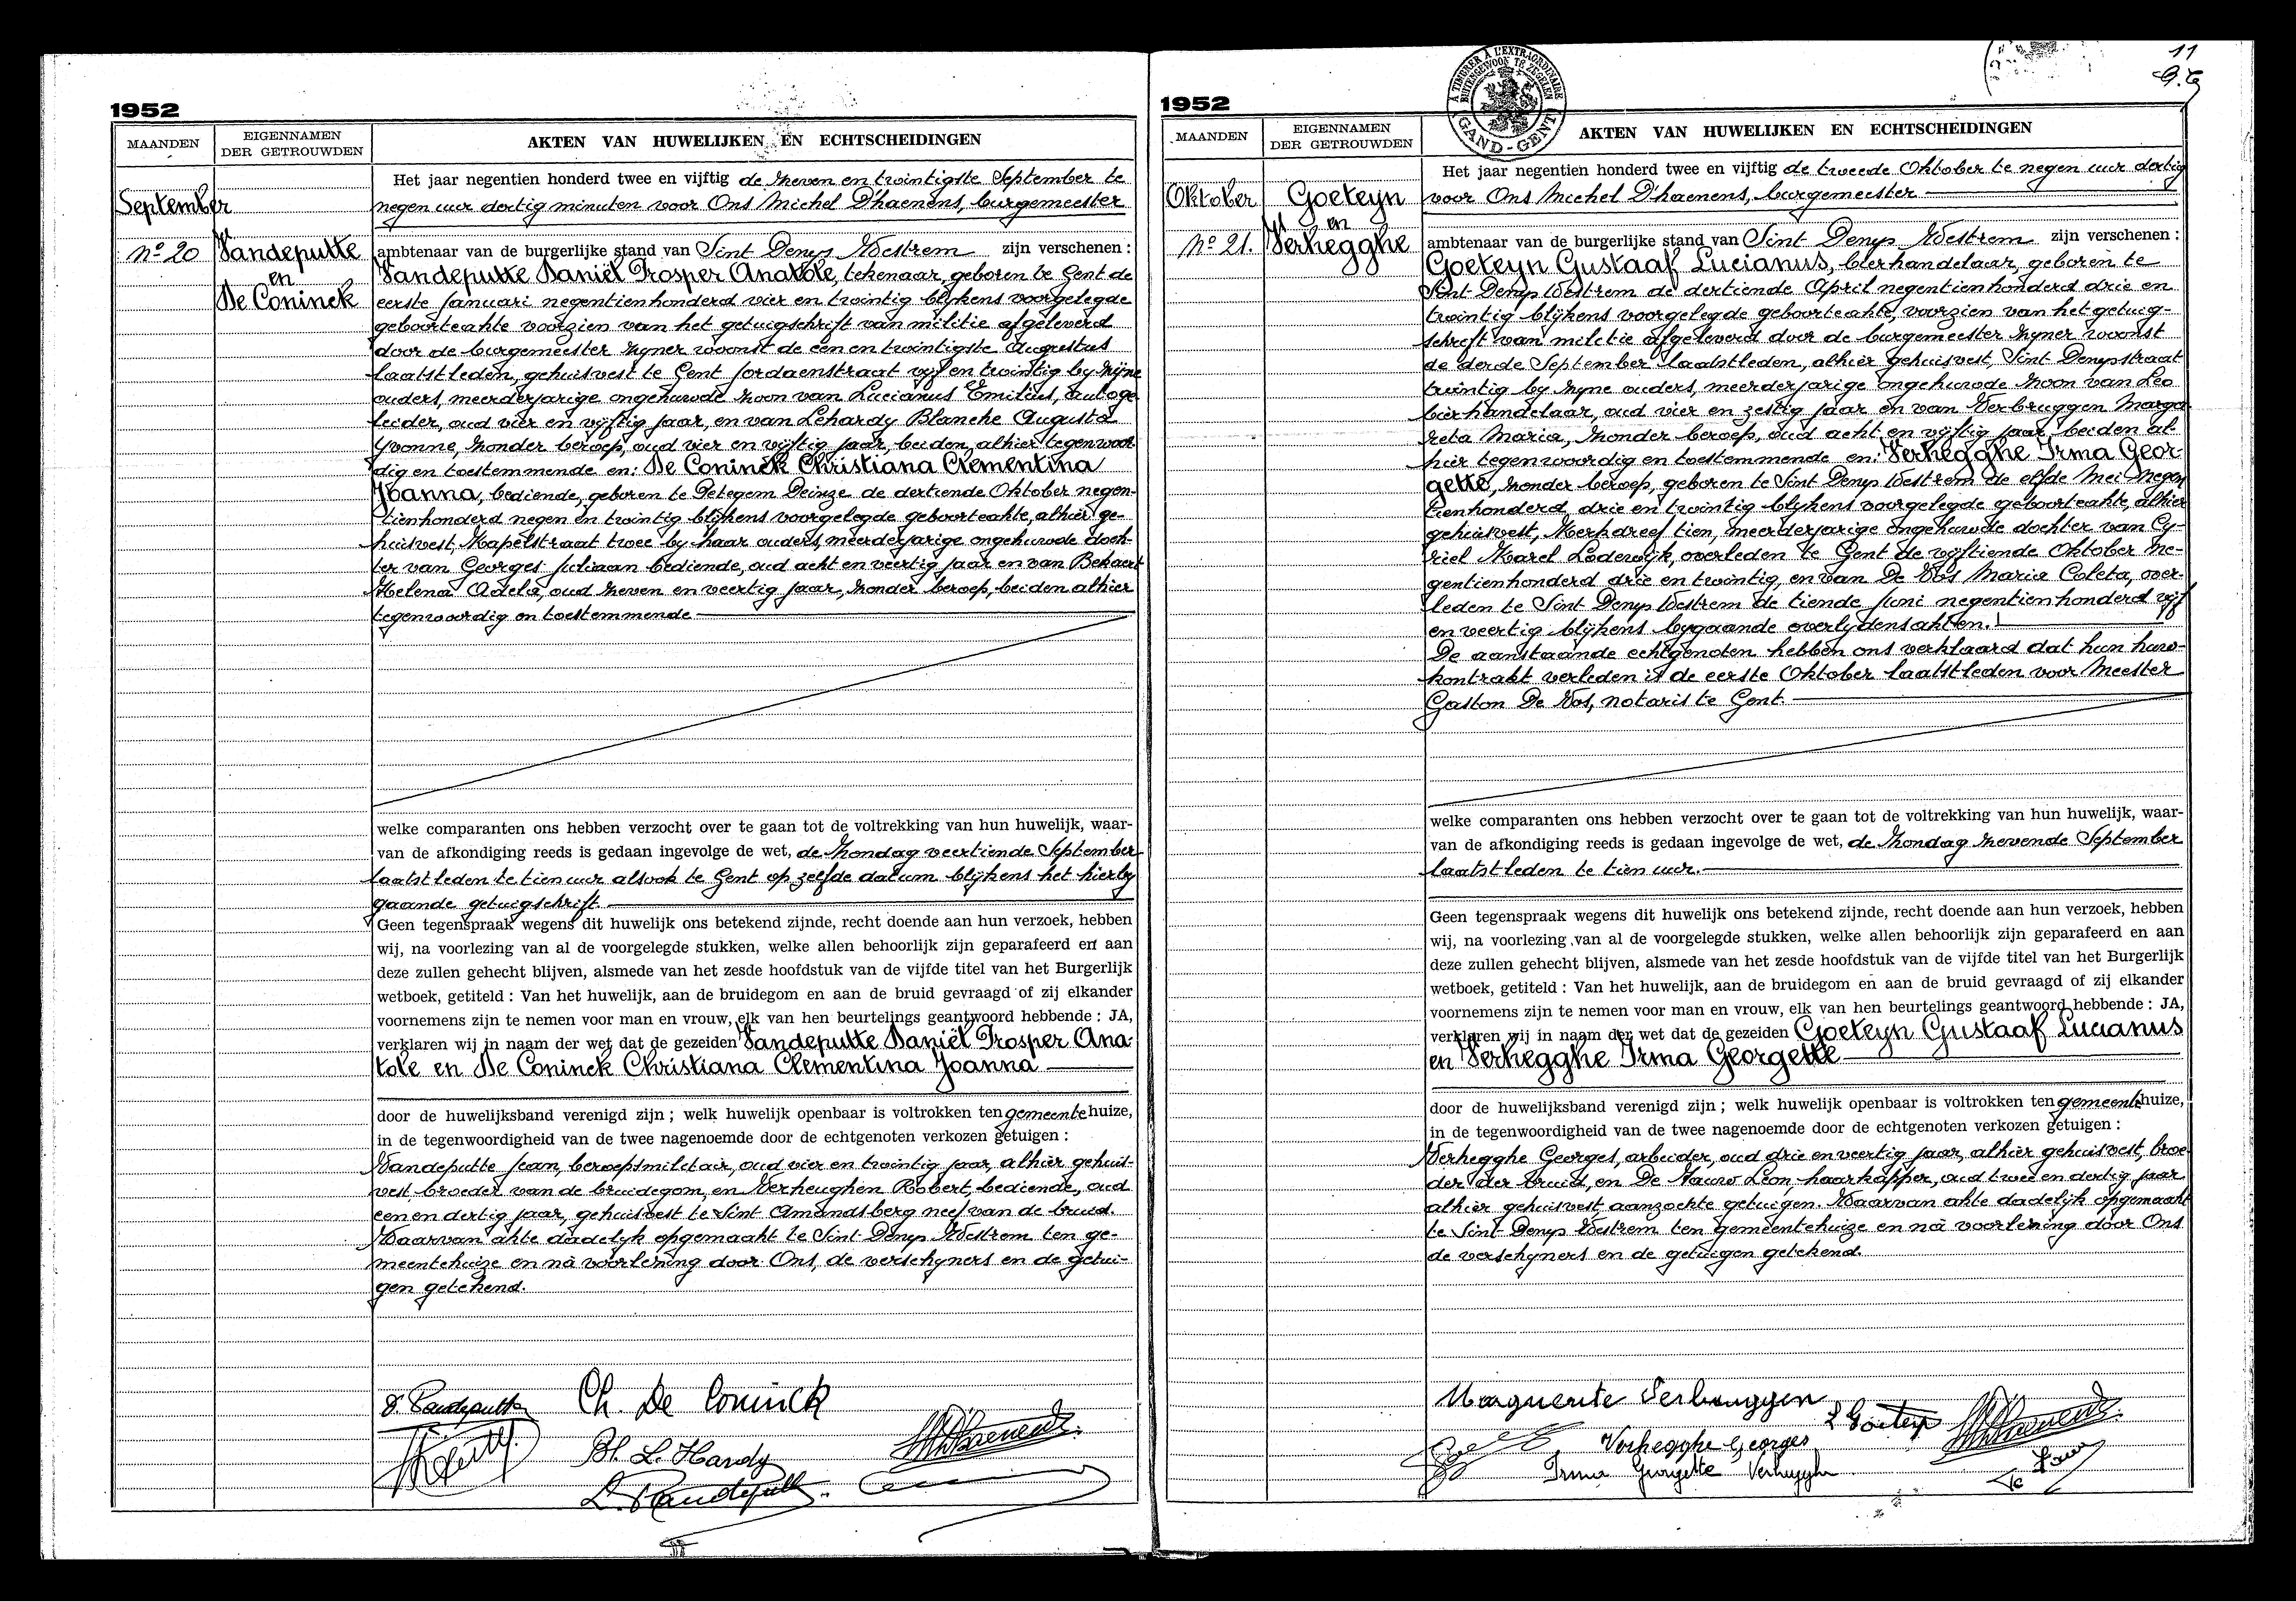 1952
MAANDEN
EIGENNAMEN
DER GETROUWDEN
AKTEN VAN HUWELIJKEN EN ECHTSCHEIDINGEN
September
nº 20
Vandeputte
en
De Coninck
Het jaar negentien honderd twee en vijftig de zeven en twintigste September te
negen uur dertig minuten voor Ons Michel D'haenens, burgemeester
ambtenaar van de burgerlijke stand van Sint Denys Westrem zijn verschenen :
Vandeputte Daniël Prosper Anatole, tekenaar, geboren te Gent de
eerste Januari negentienhonderd vier en twintig blijkens voorgelegde
geboorteakte voorzien van het getuigschrift van militie afgeleverd
door de burgemeester zyner woonst de een en twintigste Augustus
laatstleden, gehuisvest te Gent Jordaenstraat vyf en twintig by zyne
ouders, meerderjarige ongehuwde zoon van Lucianus Emilius, autoge
leider, oud vier en vyftig jaar, en van Lehardy Blanche Augusta
Yvonne, zonder beroep, oud vier en vyftig jaar, beiden, alhier tegenwoor
dig en toestemmende en: De Coninck Christiana Clementina
Joanna, bediende, geboren te Petegem Deinze de dertiende Oktober negen-
tienhonderd negen en twintig blijkens voorgelegde geboorteakte, alhier ge-
huisvest, Kapelstraat twee by haar ouders, meerderjarige ongehuwde doch-
ter van Georges Juliaan bediende, oud acht en veertig jaar en van Bekaert
Helena Adela, oud zeven en veertig jaar, zonder beroep, beiden alhier
tegenwoordig en toestemmende
welke comparanten ons hebben verzocht over te gaan tot de voltrekking van hun huwelijk, waar-
van de afkondiging reeds is gedaan ingevolge de wet, de Zondag veertiende September
laatstleden te tien uur alsook te Gent op zelfde datum blijkens het hierby
gaande getuigschrift.
Geen tegenspraak wegens dit huwelijk ons betekend zijnde, recht doende aan hun verzoek, hebben
wij, na voorlezing van al de voorgelegde stukken, welke allen behoorlijk zijn geparafeerd en aan
deze zullen gehecht blijven, alsmede van het zesde hoofdstuk van de vijfde titel van het Burgerlijk
wetboek, getiteld : Van het huwelijk, aan de bruidegom en aan de bruid gevraagd of zij elkander
voornemens zijn te nemen voor man en vrouw, elk van hen beurtelings geantwoord hebbende : JA,
verklaren wij in naam der wet dat de gezeiden Vandeputte Daniël Prosper Ana-
tole en De Coninck Christiana Clementina Joanna
door de huwelijksband verenigd zijn ; welk huwelijk openbaar is voltrokken ten gemeentehuize,
in de tegenwoordigheid van de twee nagenoemde door de echtgenoten verkozen getuigen :
Vandeputte Jean, beroepsmilitair, oud vier en twintig jaar, alhier gehuis-
vest, broeder van de bruidegom, en Verheughen Robert, bediende, oud
een en dertig jaar, gehuisvest te Sint Amandsberg neef van de bruid.
Waarvan akte dadelyk opgemaakt te Sint Denys Westrem ten ge-
meentehuize en nà voorlezing door Ons, de verschyners en de getui-
gen getekend.
D. Vandeputte
Ch. De Coninck
Bl. L. Hardy
L. Vandeputte
1952
11
MAANDEN
EIGENNAMEN
DER GETROUWDEN
A TIMBRER A L'EXTRAORDINAIRE
BUITENGEWOON TE ZEGELEN
GAND-GENT
AKTEN VAN HUWELIJKEN EN ECHTSCHEIDINGEN
Oktober
nº 21.
Goeteyn
en
Verhegghe
Het jaar negentien honderd twee en vijftig de tweede Oktober te negen uur dertig
voor Ons Michel D'haenens, burgemeester
ambtenaar van de burgerlijke stand van Sint Denys Westrem zijn verschenen :
Goeteyn Gustaaf Lucianus, bierhandelaar, geboren te
Sint Denys Westrem de dertiende April negentienhonderd drie en
twintig blijkens voorgelegde geboorteakte, voorzien van het getuig-
schrift van militie afgeleverd door de burgemeester zyner woonst
de derde September laatstleden, alhier gehuisvest, Sint Denysstraat
twintig by zyne ouders, meerderjarige ongehuwde zoon van Leo
bierhandelaar, oud vier en zestig jaar en van Verbruggen Marga
reta Maria, zonder beroep, oud acht en vyftig jaar, beiden al-
hier tegenwoordig en toestemmende en: Verhegghe Irma Geor-
gette, zonder beroep, geboren te Sint Denys Westrem de elfde Mei negen
tienhonderd drie en twintig blijkens voorgelegde geboorteakte, alhier
gehuisvest, Kerkdreef tien, meerderjarige ongehuwde dochter van Cy-
riel Karel Lodewyk, overleden te Gent de vyftiende Oktober ne-
gentienhonderd drie en twintig, en van De Vos Maria Coleta, over-
leden te Sint Denys Westrem de tiende Juni negentienhonderd vyf
en veertig blijkens bygaande overlydensakten.
De aanstaande echtgenoten hebben ons verklaard dat hun huw-
kontrakt verleden is de eerste Oktober laatstleden voor Meester
Gaston De Vos, notaris te Gent.
welke comparanten ons hebben verzocht over te gaan tot de voltrekking van hun huwelijk, waar-
van de afkondiging reeds is gedaan ingevolge de wet, de Zondag zevende September
laatstleden te tien uur.
Geen tegenspraak wegens dit huwelijk ons betekend zijnde, recht doende aan hun verzoek, hebben
wij, na voorlezing van al de voorgelegde stukken, welke allen behoorlijk zijn geparafeerd en aan
deze zullen gehecht blijven, alsmede van het zesde hoofdstuk van de vijfde titel van het Burgerlijk
wetboek, getiteld : Van het huwelijk, aan de bruidegom en aan de bruid gevraagd of zij elkander
voornemens zijn te nemen voor man en vrouw, elk van hen beurtelings geantwoord hebbende : JA,
verklaren wij in naam der wet dat de gezeiden Goeteyn Gustaaf Lucianus
en Verhegghe Irma Georgette
door de huwelijksband verenigd zijn ; welk huwelijk openbaar is voltrokken ten gemeentehuize,
in de tegenwoordigheid van de twee nagenoemde door de echtgenoten verkozen getuigen :
Verhegghe Georges, arbeider, oud drie en veertig jaar, alhier gehuisvest, broe
der der bruid, en De Nauw Leon, haarkapper, oud twee en dertig jaar
alhier gehuisvest, aanzochte getuigen. Waarvan akte dadelyk opgemaakt
te Sint Denys Westrem ten gemeentehuize en nà voorlezing door Ons
de verschyners en de getuigen getekend.
Marguerite Verbruggen
L Goeteyn
Verhegghe Georges
Irma Georgette Verhegghe